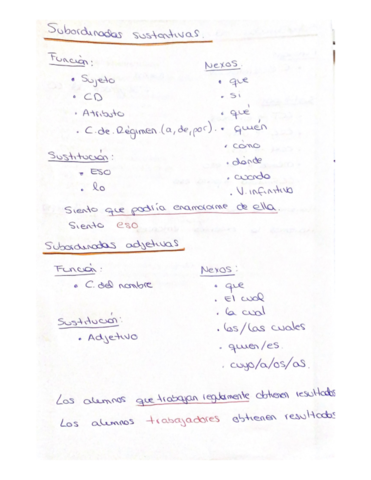 Subordinadas sustantivas.
Función:
• Sujeto
• CD
• Atributo
• C. de Régimen (a, de, por).
Nexos.
• que
• si
• qué
• quién
• cómo
• dónde
• cuando
• V. infinitivo
Sustitución:
• ESO
• lo
Siento que podría enamorarme de ella.
Siento eso
Subordinadas adjetivas
Función:
• C. del nombre
Nexos:
• que
• El cual
• la cual
• los/las cuales
• quien/es
• cuyo/a/os/as.
Sustitución:
• Adjetivo
Los alumnos que trabajan regularmente obtienen resultados
Los alumnos trabajadores obtienen resultados